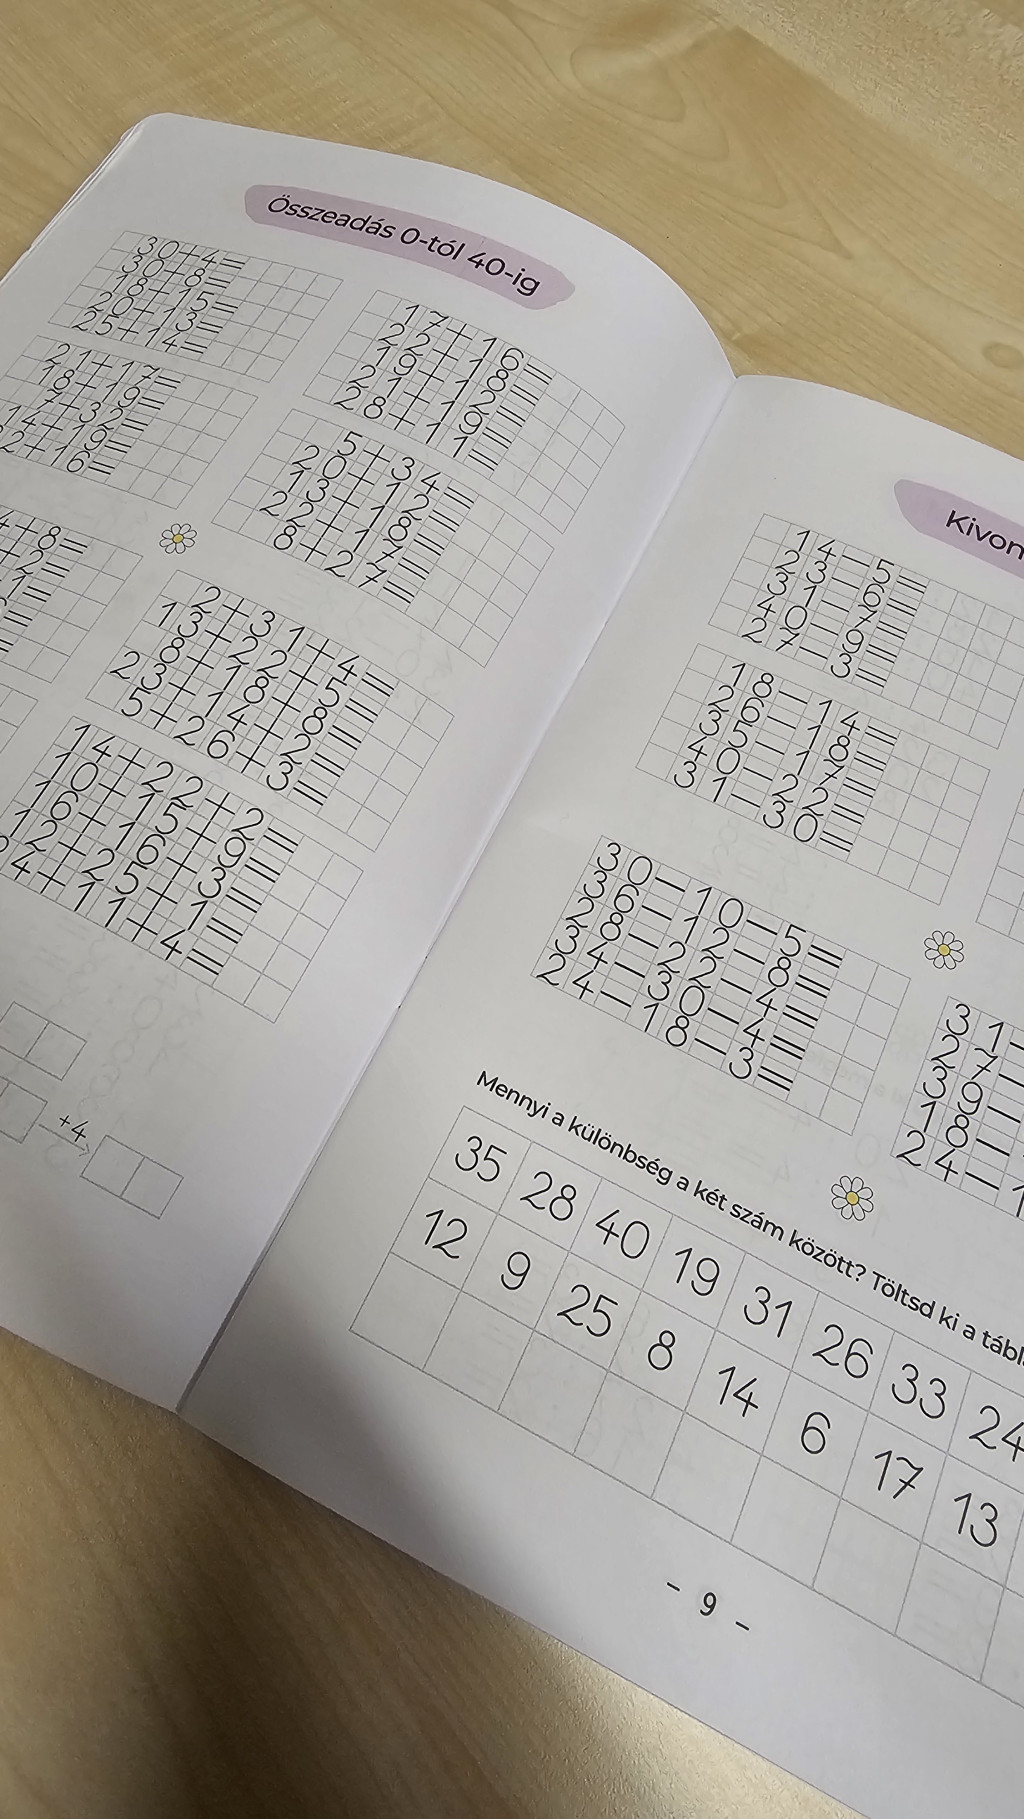 Összeadás 0-tól 40-ig
30+4=
30+8=
18+15=
20+13=
25+14=
17+16=
22+18=
19+12=
21+19=
28+11=
21+17=
18+19=
7+32=
14+19=
2+16=
5+34=
20+12=
13+18=
22+17=
8+27=
4+8=
+2=
1=
=
=
2+31+4=
13+22+5=
8+18+8=
23+14+2=
5+26+3=
14+22+2=
10+15+9=
16+16+3=
12+25+1=
4+11+4=
+4
Kivon
14-5=
23-6=
31-7=
40-9=
27-3=
18-14=
26-18=
35-17=
40-22=
31-30=
30-10-5=
36-12-8=
28-22-4=
34-30-4=
24-18-3=
31-
27-
39-
18-
24-1
Mennyi a különbség a két szám között? Töltsd ki a tábl
35 28 40 19 31 26 33 24
12 9 25 8 14 6 17 13
- 9 -